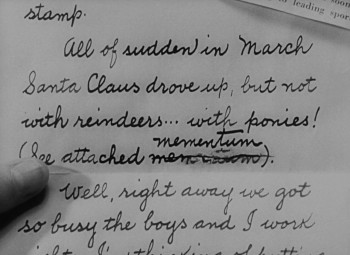 leading spor
stamp.
All of sudden in March
Santa Claus drove up, but not
with reindeers... with ponies!
mementum
(See attached ).
Well, right away we got
so busy the boys and I work